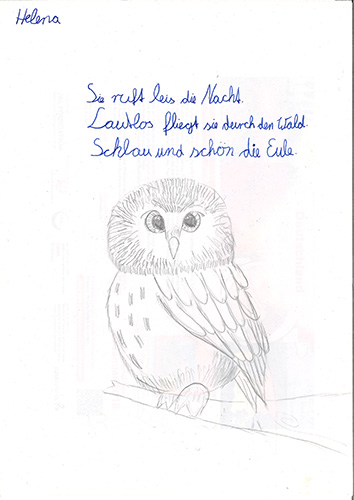 Helena
Sie ruft leis die Nacht.
Lautlos fliegt sie durch den Wald.
Schlau und schön die Eule.